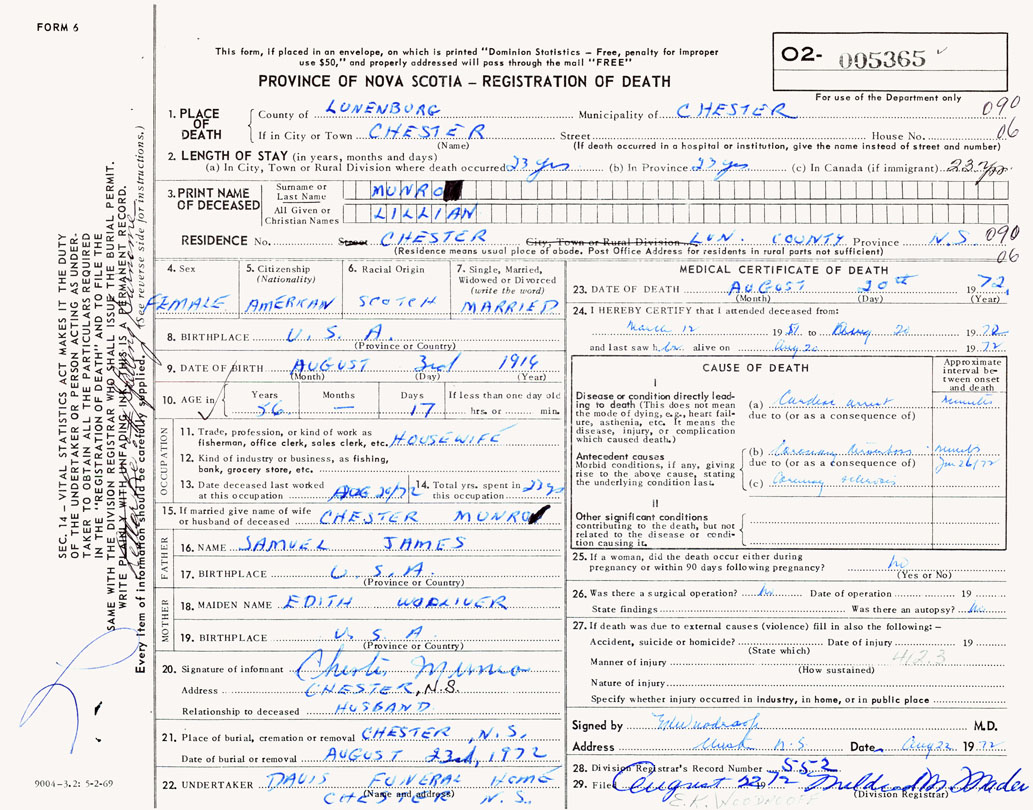 FORM 6
This form, if placed in an envelope, on which is printed "Dominion Statistics – Free, penalty for improper
use $50," and properly addressed will pass through the mail "FREE"
PROVINCE OF NOVA SCOTIA – REGISTRATION OF DEATH
02- 005365
For use of the Department only
090
06
1. PLACE OF DEATH
County of LUNENBURG Municipality of CHESTER
If in City or Town CHESTER Street House No.
(Name) (If death occurred in a hospital or institution, give the name instead of street and number)
2. LENGTH OF STAY (in years, months and days)
(a) In City, Town or Rural Division where death occurred 23 yrs (b) In Province 23 yrs (c) In Canada (if immigrant) 23 yrs
3. PRINT NAME OF DECEASED
Surname or Last Name MUNRO
All Given or Christian Names LILLIAN
RESIDENCE No. Street CHESTER City, Town or Rural Division LUN. COUNTY Province N.S. 090
(Residence means usual place of abode. Post Office Address for residents in rural parts not sufficient) 06
4. Sex
FEMALE
5. Citizenship (Nationality)
AMERICAN
6. Racial Origin
SCOTCH
7. Single, Married, Widowed or Divorced (write the word)
MARRIED
8. BIRTHPLACE U. S. A.
(Province or Country)
9. DATE OF BIRTH AUGUST 3rd 1916
(Month) (Day) (Year)
10. AGE in Years Months Days If less than one day old
56 — 17 hrs. or min.
OCCUPATION
11. Trade, profession, or kind of work as
fisherman, office clerk, sales clerk, etc. HOUSEWIFE
12. Kind of industry or business, as fishing,
bank, grocery store, etc.
13. Date deceased last worked
at this occupation AUG 20/72
14. Total yrs. spent in
this occupation 23 yrs
15. If married give name of wife
or husband of deceased CHESTER MUNRO
FATHER
16. NAME SAMUEL JAMES
17. BIRTHPLACE U. S. A.
(Province or Country)
MOTHER
18. MAIDEN NAME EDITH
19. BIRTHPLACE U. S. A.
(Province or Country)
20. Signature of informant Chester Munro
Address CHESTER, N.S.
Relationship to deceased HUSBAND
21. Place of burial, cremation or removal CHESTER, N.S.
Date of burial or removal AUGUST 23rd, 1972
22. UNDERTAKER DAVIS FUNERAL HOME
(Name and address)
CHESTER N.S.
MEDICAL CERTIFICATE OF DEATH
23. DATE OF DEATH AUGUST 20th 1972
(Month) (Day) (Year)
24. I HEREBY CERTIFY that I attended deceased from:
March 12 19 51 to Aug 20 1972
and last saw her alive on Aug 20 1972
CAUSE OF DEATH
Approximate interval between onset and death
I
Disease or condition directly leading to death (This does not
mean the mode of dying, e.g., heart failure, asthenia, etc. It means the
disease, injury, or complication
which caused death.)
(a) Cardiac arrest minutes
due to (or as a consequence of)
Antecedent causes
Morbid conditions, if any, giving
rise to the above cause, stating
the underlying condition last.
(b) Coronary thrombosis
due to (or as a consequence of)
(c) Coronary sclerosis
II
Other significant conditions
contributing to the death, but not
related to the disease or condition causing it.
25. If a woman, did the death occur either during
pregnancy or within 90 days following pregnancy? No
(Yes or No)
26. Was there a surgical operation? No Date of operation 19
State findings Was there an autopsy? No
27. If death was due to external causes (violence) fill in also the following:–
Accident, suicide or homicide? Date of injury 19
(State which)
Manner of injury 412.3
(How sustained)
Nature of injury
Specify whether injury occurred in industry, in home, or in public place
Signed by M.D.
Address N.S. Date Aug 22 1972
28. Division Registrar's Record Number 552
29. Filed August 22 1972 Mildred M. Mader
(Division Registrar)
SEC. 14 – VITAL STATISTICS ACT MAKES IT THE DUTY
OF THE UNDERTAKER OR PERSON ACTING AS UNDERTAKER TO OBTAIN ALL THE PARTICULARS REQUIRED
IN THE "REGISTRATION OF DEATH" AND TO FILE THE
SAME WITH THE DIVISION REGISTRAR WHO SHALL ISSUE THE BURIAL PERMIT.
WRITE PLAINLY WITH UNFADING INK THIS IS A PERMANENT RECORD.
Every item of information should be carefully supplied. (See reverse side for instructions.)
9004-3.2: 5-2-69